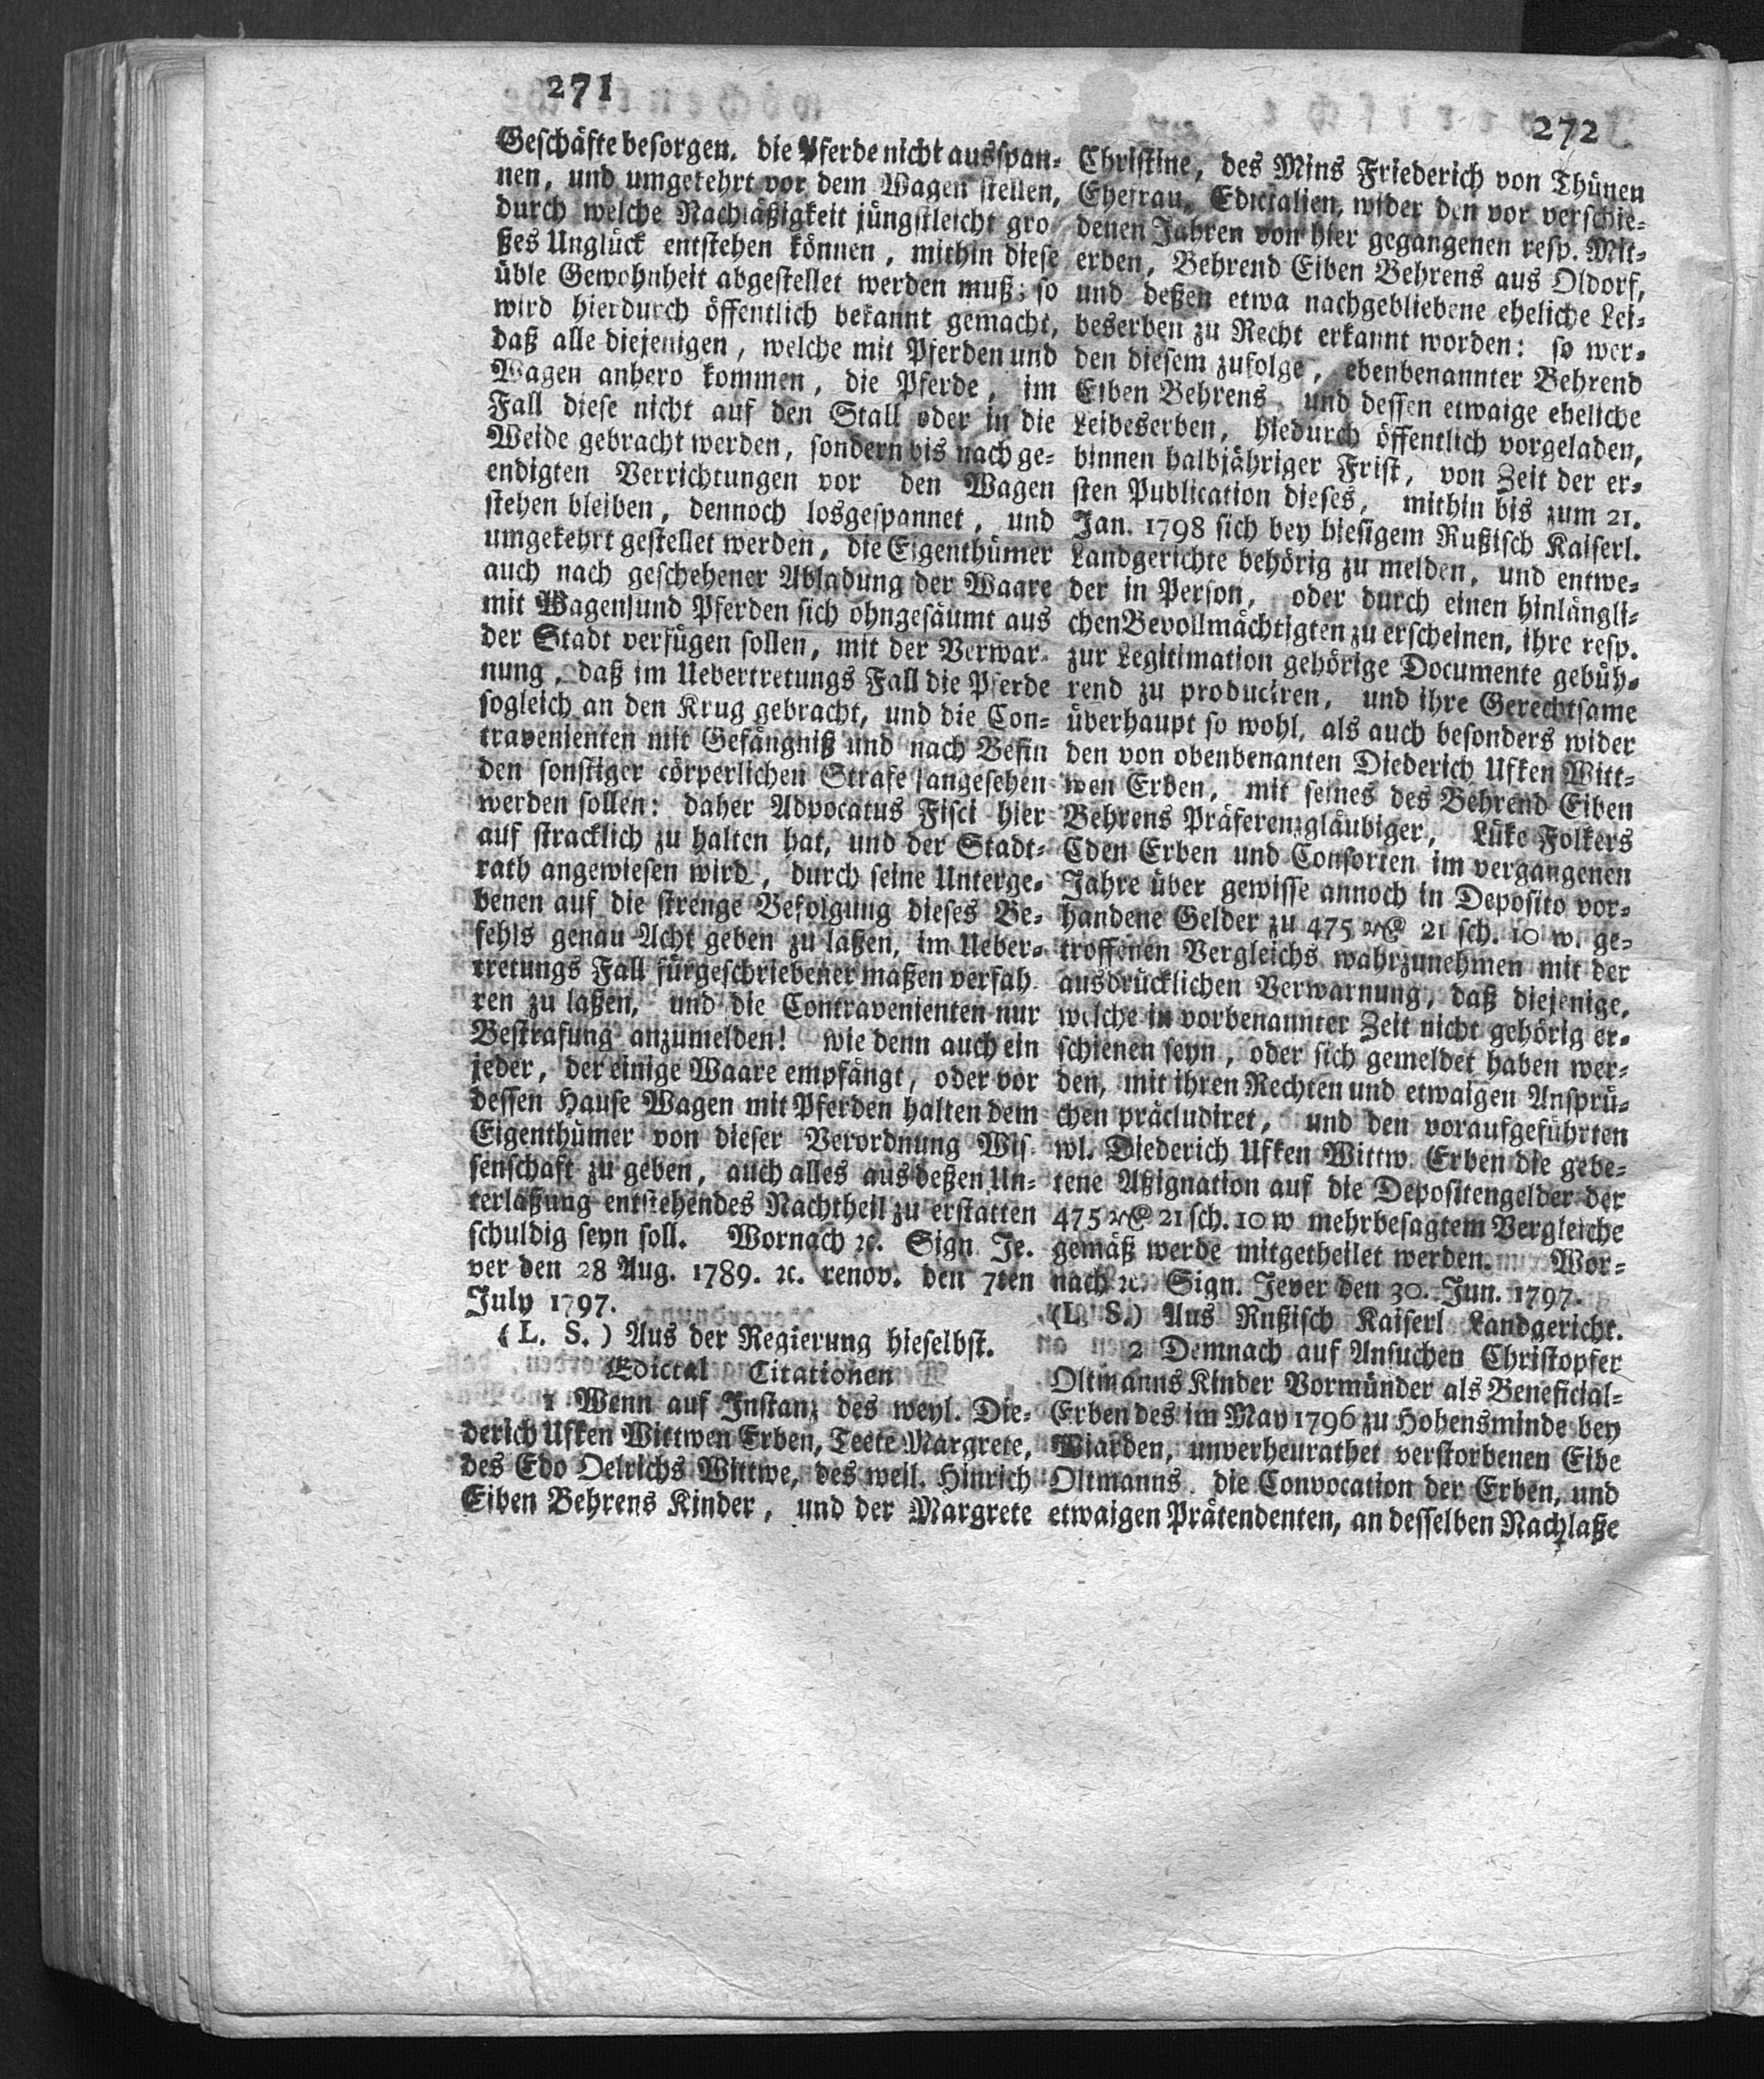 271
Geschäfte besorgen. die Pferde nicht ausspan-
nen, und umgekehrt vor dem Wagen stellen,
durch welche Nachläßigkeit jüngstleicht gro
ßes Unglück entstehen können, mithin diese
üble Gewohnheit abgestellet werden muß; so
wird hierdurch öffentlich bekannt gemacht,
daß alle diejenigen, welche mit Pferden und
Wagen anhero kommen, die Pferde, im
Fall diese nicht auf den Stall oder in die
Weide gebracht werden, sondern bis nach ge-
endigten Verrichtungen vor den Wagen
stehen bleiben, dennoch losgespannet, und
umgekehrt gestellet werden, die Eigenthümer
auch nach geschehener Abladung der Waare
mit Wagen und Pferden sich ohngesäumt aus
der Stadt verfügen sollen, mit der Verwar-
nung, daß im Uebertretungs Fall die Pferde
sogleich an den Krug gebracht, und die Con-
travenienten mit Gefängniß und nach Befin
den sonstiger cörperlichen Strafe angesehen
werden sollen: daher Advocatus Fisci hier
auf stracklich zu halten hat, und der Stadt-
rath angewiesen wird, durch seine Unterge-
benen auf die strenge Befolgung dieses Be-
fehls genau Acht geben zu laßen, im Ueber-
tretungs Fall fürgeschriebener maßen verfah
ren zu laßen, und die Contravenienten nur
Bestrafung anzumelden! wie denn auch ein
jeder, der einige Waare empfängt, oder vor
dessen Hause Wagen mit Pferden halten dem
Eigenthümer von dieser Verordnung Wis
senschaft zu geben, auch alles aus deßen Un-
terlaßung entstehendes Nachtheil zu erstatten
schuldig seyn soll. Wornach ꝛc. Sign Je.
ver den 28 Aug. 1789. ꝛc. renov. den 7ten
July 1797.
(L. S.) Aus der Regierung hieselbst.
Edictal Citationen
1 Wenn auf Instanz des weyl. Die-
derich Ufken Wittwen Erben, Teete Margrete,
des Edo Oelrichs Wittwe, des weil. Hinrich
Eiben Behrens Kinder, und der Margrete
272
Christine, des Mins Friederich von Thünen
Ehefrau, Edictalien, wider den vor verschie-
denen Jahren von hier gegangenen resp. Mit-
erben, Behrend Eiben Behrens aus Oldorf,
und deßen etwa nachgebliebene eheliche Lei-
beserben zu Recht erkannt worden: so wer-
den diesem zufolge, ebenbenannter Behrend
Eiben Behrens und dessen etwaige eheliche
Leibeserben, hiedurch öffentlich vorgeladen,
binnen halbjähriger Frist, von Zeit der er-
sten Publication dieses, mithin bis zum 21.
Jan. 1798 sich bey hiesigem Rußisch Kaiserl.
Landgerichte behörig zu melden, und entwe-
der in Person, oder durch einen hinlängli-
chen Bevollmächtigten zu erscheinen, ihre resp.
zur Legitimation gehörige Documente gebüh-
rend zu produciren, und ihre Gerechtsame
überhaupt so wohl, als auch besonders wider
den von obenbenanten Diederich Ufken Witt-
wen Erben, mit seines des Behrend Eiben
Behrens Präferenzgläubiger, Lüke Folkers
Eden Erben und Consorten im vergangenen
Jahre über gewisse annoch in Deposito vor-
handene Gelder zu 475 rthl 21 sch. 10 w. ge-
troffenen Vergleichs wahrzunehmen mit der
ausdrücklichen Verwarnung, daß diejenige,
welche in vorbenannter Zeit nicht gehörig er-
schienen seyn, oder sich gemeldet haben wer-
den, mit ihren Rechten und etwaigen Ansprü-
chen präcludiret, und den voraufgeführten
wl. Diederich Ufken Wittw. Erben die gebe-
tene Aßignation auf die Depositengelder der
475 rthl 21 sch. 10 w mehrbesagtem Vergleiche
gemäß werde mitgetheilet werden. Wor-
nach ꝛc. Sign. Jever den 30. Jun. 1797.
(L. S.) Aus Rußisch Kaiserl Landgericht.
2 Demnach auf Ansuchen Christopfer
Oltmanns Kinder Vormünder als Beneficial-
Erben des im May 1796 zu Hohensminde bey
Wiarden, unverheurathet verstorbenen Eibe
Oltmanns die Convocation der Erben, und
etwaigen Prätendenten, an desselben Nachlaße